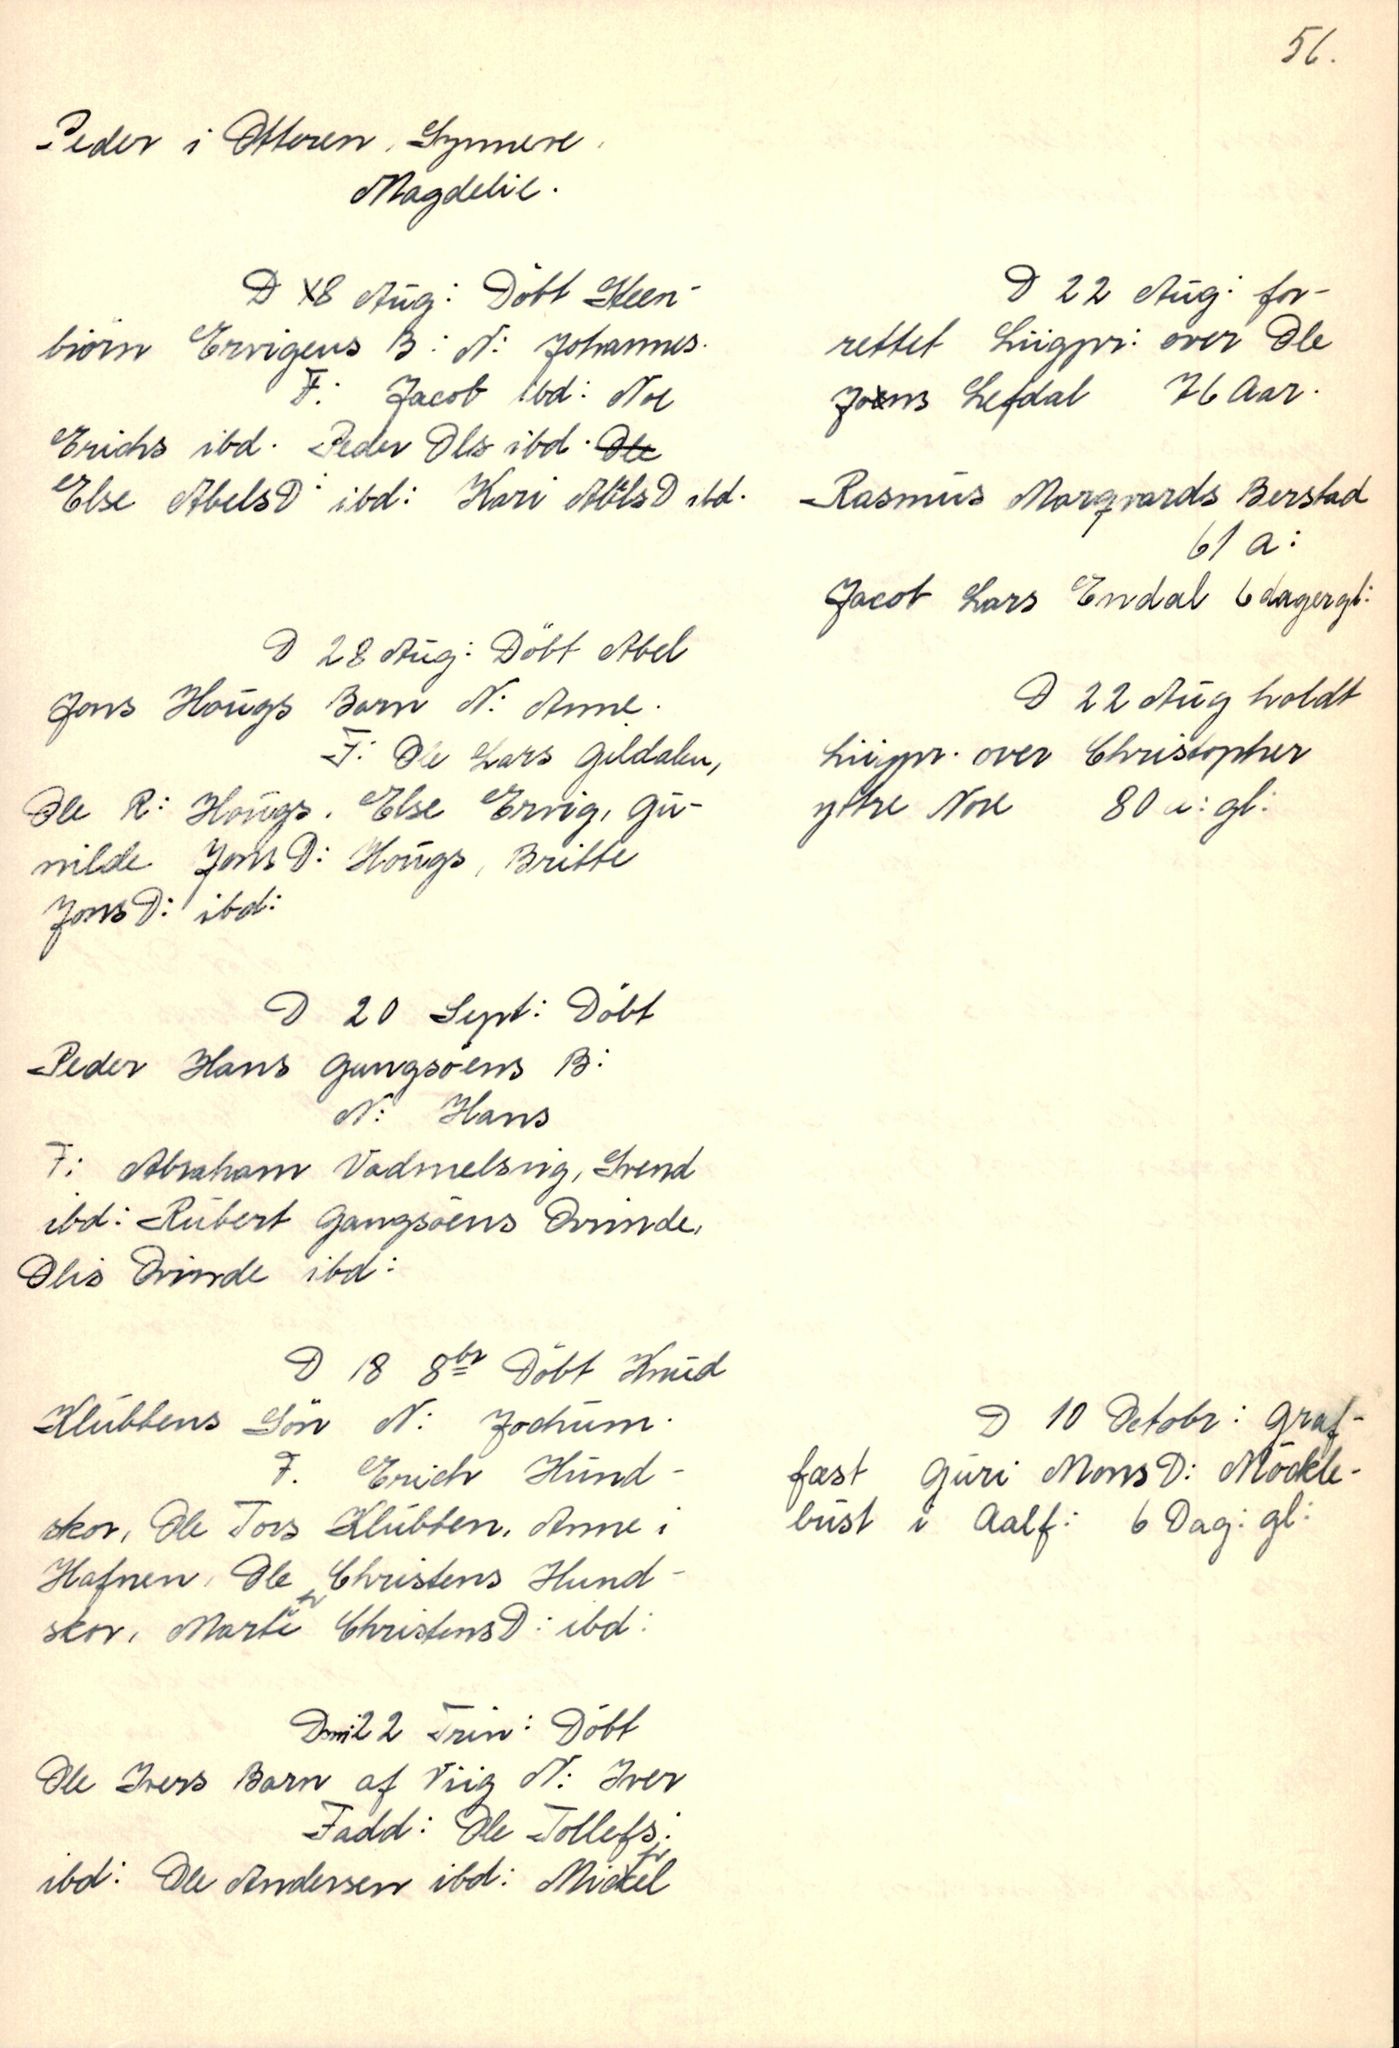 56.
Peder i Otteren, Synneve,
Magdelil.
D 18 Aug: Döbt Steen-
biörn Ervigens B: N: Johannes.
F: Jacob ibd: Noe
Erichs ibd. Peder Ols ibd. Ole
Else AbelsD: ibd: Kari AbelsD ibd.
D 28 Aug: Döbt Abel
Jons Hougs Barn N: Anne.
F: Ole Lars Gildalen,
Ole R: Hougs. Else Ervig, Gu-
nilde JonsD: Hougs, Britte
JonsD: ibd:
D 20 Sept: Döbt
Peder Hans Gangsöens B:
N: Hans
F: Abraham Vadmelsvig, Svend
ibd: Rubert Gangsöens Qvinde,
Olis Qvinde ibd:
D 18 8br Döbt Knud
Klubbens Sön N: Jochum.
F. Erich Hund-
skor, Ole Tors Klubben, Anne i
Hafnen, Ole Christens Hund-
skor, Marte ChristensD: ibd:
Dom 22 Trin: Döbt
Ole Ivers Barn af Viig N: Iver
Fadd: Ole Tollefs:
ibd: Ole Andersen ibd: Mickel
D 22 Aug: for-
rettet Liigpr: over Ole
Jons Lefdal 76 Aar.
Rasmus Marqvards Berstad
61 a:
Jacob Lars Endal 6 dager gl:
D 22 Aug holdt
Liigpr. over Christopher
yttre Nore 80 a: gl:
D 10 Octobr: Graf-
fæst Guri MonsD: Möckle-
bust i Aalf: 6 Dag: gl: